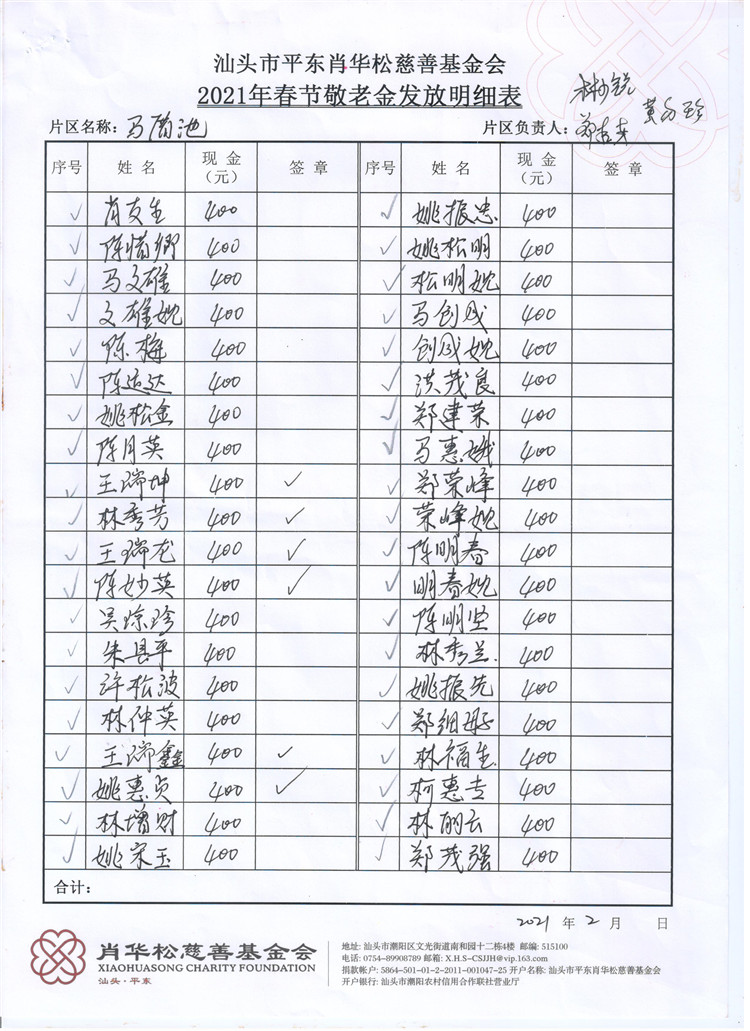 汕头市平东肖华松慈善基金会
2021年春节敬老金发放明细表
片区名称：马滘池 片区负责人：
序号 姓名 现金（元） 签章 序号 姓名 现金（元） 签章
✓ 肖友生 400 ✓ 姚振忠 400
✓ 陈惜卿 400 ✓ 姚松明 400
✓ 马文雄 400 ✓ 松明婏 400
✓ 文雄婏 400 ✓ 马创茂 400
✓ 陈梅 400 ✓ 创茂婏 400
✓ 陈运达 400 ✓ 洪茂良 400
✓ 姚松金 400 ✓ 郑建荣 400
✓ 陈月英 400 ✓ 马惠娥 400
✓ 王瑞坤 400 ✓ ✓ 郑荣峰 400
✓ 林秀芳 400 ✓ ✓ 荣峰婏 400
✓ 王瑞龙 400 ✓ ✓ 陈明春 400
✓ 陈妙英 400 ✓ ✓ 明春婏 400
✓ 吴琼珍 400 ✓ 陈明坚 400
✓ 朱昌平 400 ✓ 林秀兰 400
✓ 许松波 400 ✓ 姚振先 400
✓ 林仲英 400 ✓ 郑细 400
✓ 王瑞鑫 400 ✓ ✓ 林福生 400
✓ 姚惠贞 400 ✓ ✓ 柯惠 400
✓ 林增财 400 ✓ 林丽云 400
✓ 姚宋玉 400 ✓ 郑茂强 400
合计：
2021 年 2 月 日
肖华松慈善基金会
XIAOHUASONG CHARITY FOUNDATION
汕头·平东
地址: 汕头市潮阳区文光街道南和园十二栋4楼 邮编: 515100
电话: 0754-89908789 邮箱: X.H.S-CSJJH@vip.163.com
捐款帐户: 5864-501-01-2-2011-001047-25 开户名称: 汕头市平东肖华松慈善基金会
开户银行: 汕头市潮阳农村信用合作联社营业厅